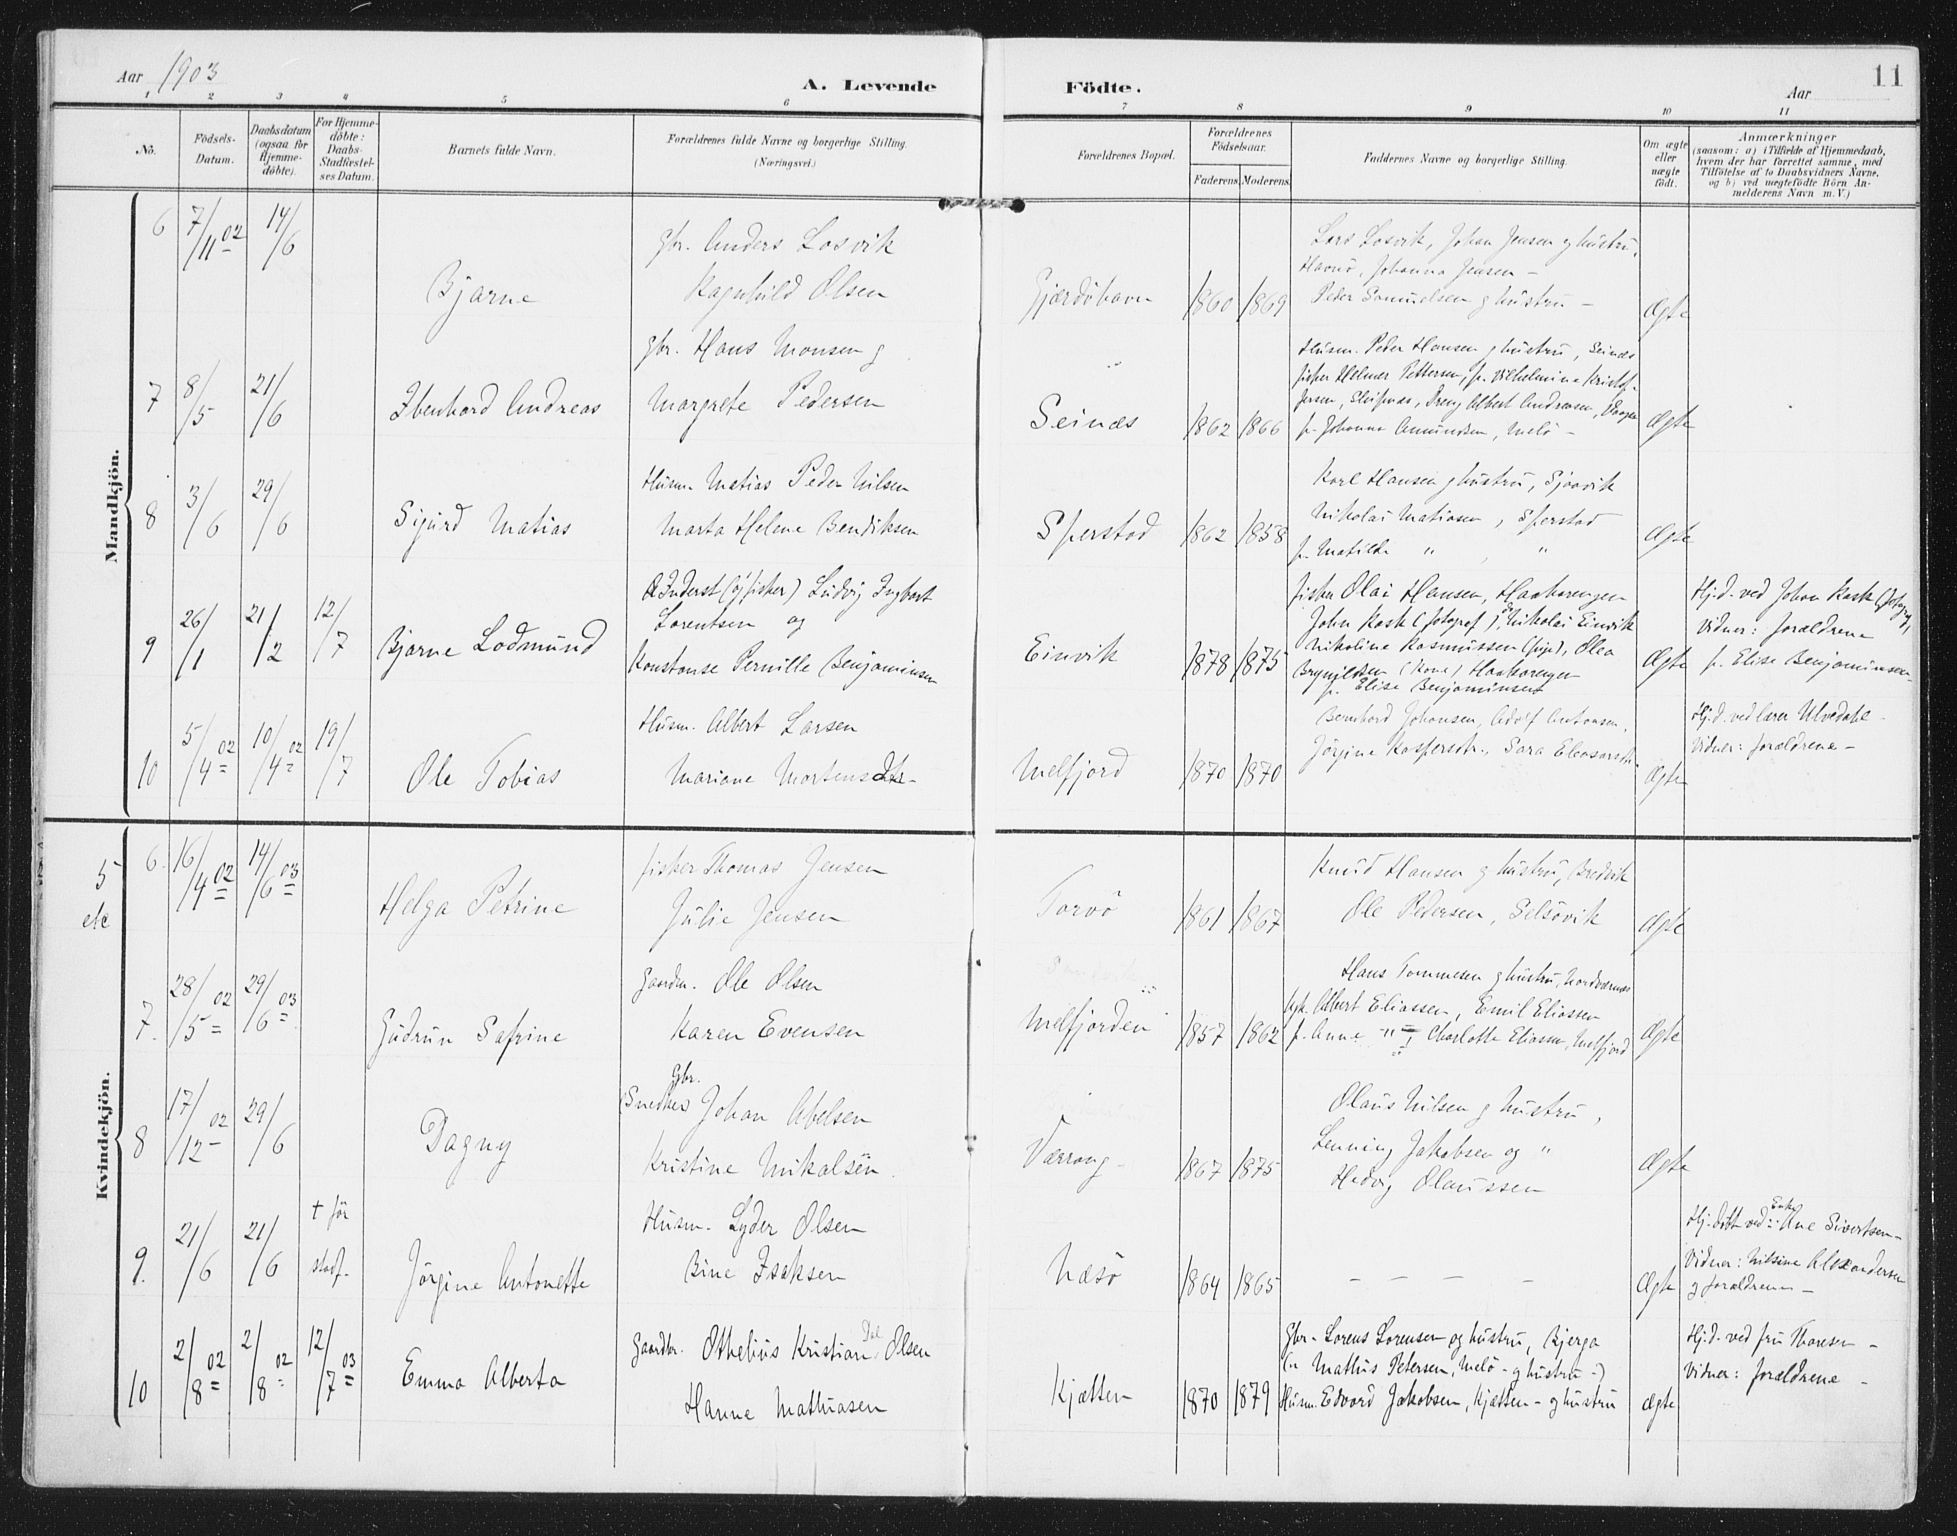 Aar 1903
A. Levende
Födte.
Aar
11
1 2 3 4 5 6 7 8 9 10 11
No.
Födsels-Datum.
Daabsdatum (ogsaa for Hjemme-döbte).
For Hjemme-döbte: Daabs-Stadfæstel-ses Datum.
Barnets fulde Navn.
Forældrenes fulde Navne og borgerlige Stilling.
(Næringsvei.)
Forældrenes Bopæl.
Forældrenes Födselsaar.
Faderens. Moderens.
Faddernes Navne og borgerlige Stilling.
Om ægte eller uægte födt.
Anmærkninger
(saasom: a) i Tilfælde af Hjemmedaab,
hvem der har forrettet samme, med
Tilföielse af to Daabsvidners Navne,
og b) ved uægtefödte Börn An-
melderens Navn m. V.)
Mandkjön.
6 7/11 02 14/6
Bjarne
Gbr. Anders Losvik
Ragnhild Olsen
Gjærdöhavn 1860 1869
Lars Losvik, Johan Jensen g hustru,
Havnö, Johanna Jensen –
Peder Samuelsen g hustru –
Ægte
7 8/5 21/6
Ibenhard Andreas
Gbr. Hans Monsen g
Margrete Pedersen
Seinæs 1862 1866
Husm. Peder Hansen g hustru, Seinæs
fisker Helmer Pettersen, p. Vilhelmine Kristof-
fersen, Dreng Albert Andreasen, Vaagen
p. Johanna Amundsen, Melö –
Ægte
8 3/6 29/6
Sigurd Matias
Husm. Matias Peder Nilsen
Marta Helene Bendiksen
Sperstad 1862 1858
Karl Hansen g hustru, Sjonvik
Nikolai Matiasen, Sperstad
p. Matilde " , "
Ægte
9 26/1 21/2 12/7
Bjarne Lodmund
Inderst (og fisker) Ludvig Ingbart
Lorentsen og
Konstanse Pernille Benjaminsen
Einvik 1878 1875
fisker Olai Hansen, Haakarengen
John Rask (fotograf), Nikolai Einvik
Nikoline Rasmussen (pige), Olea
Brynildsen (Kone) Haakarengen
p. Elise Benjaminsen
Ægte
Hj.d. ved Johan Rask (fotogr),
Vidner: forældrene
p. Elise Benjaminsen –
10 5/4 02 10/4 02 19/7
Ole Tobias
Husm. Albert Larsen
Mariane Mortensdtr –
Melfjord 1870 1870
Bernhard Johansen, Adolf Antonsen,
Jörgine Kaspersdtr., Sara Eleasarsdtr.
Ægte
Hj.d. ved lærer Ulvedahl –
Vidner: forældrene –
Kvindekjön.
5
6. 16/4 02 14/6 03
Helga Petrine
fisker Thomas Jensen
Julie Jensen
Torvö 1861 1867
Knud Hansen g hustru, Bredvik
Ole Pedersen, Selsövik
Ægte
7. 28/5 02 29/6 03
Gudrun Safrine
Gaardm. Ole Olsen
Karen Evensen
Melfjorden 1857 1862
Hans Tommesen g hustru, Nordværnes
Ugk. Albert Eliassen, Emil Eliassen
p. Anna " , Charlotte Eliassen, Melfjord
Ægte
8 17/12 02 29/6
Dagny
Gbr.
(Snedker) Johan Abelsen
Kristine Mikalsen
Værrang 1867 1875
Olaus Nilsen g hustru,
Lenning Jakobsen og "
Hedvig Olaussen
Ægte
9. 21/6 21/6 + för stadf.
Jörgine Antonette
Husm. Lyder Olsen
Bine Isaksen
Næsö 1864 1865
– – – –
Ægte
Hj. döbt ved Enke Ane Sivertsen –
Vidner: Nilsine Alexandersen
g forældrene –
10 2/8 02 2/8 02 12/7 03
Emma Alberta
Gaardbr. Othelius Kristian Dal Olsen
Hanne Mathiasen
Kjætten 1870 1879
Gbr. Lorens Lorensen og hustru, Bjerga
(" Mathias Petersen, Melö – g hustru –)
Husm. Edvard Jakobsen, Kjætten – g hustru
Ægte
Hj.d. ved fru Thoresen –
Vidner: forældrene –